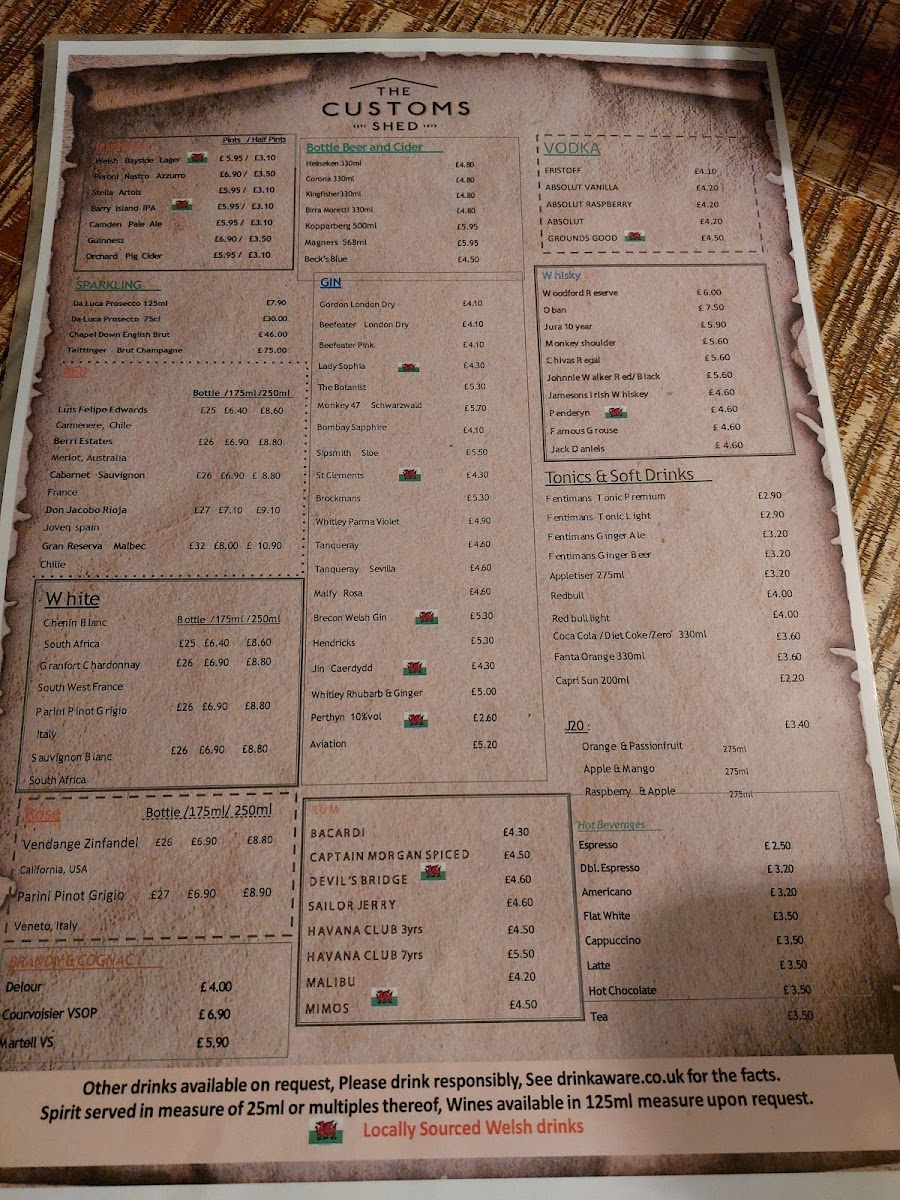 THE
CUSTOMS
ESTD SHED 1898
Pints / Half Pints
Welsh Bayside Lager £5.95 / £3.10
Peroni Nastro Azzurro £6.90 / £3.50
Stella Artois £5.95 / £3.10
Barry Island IPA £5.95 / £3.10
Camden Pale Ale £5.95 / £3.10
Guinness £6.90 / £3.50
Orchard Pig Cider £5.95 / £3.10
SPARKLING
Da Luca Prosecco 125ml £7.90
Da Luca Prosecco 75cl £30.00
Chapel Down English Brut £46.00
Taittinger Brut Champagne £75.00
RED
Bottle /175ml/250ml
Luis Felipe Edwards £25 £6.40 £8.60
Carmenere, Chile
Berri Estates £26 £6.90 £8.80
Merlot, Australia
Cabarnet Sauvignon £26 £6.90 £ 8.80
France
Don Jacobo Rioja £27 £7.10 £9.10
Joven spain
Gran Reserva Malbec £32 £8.00 £ 10.90
Chille
White
Chenin Blanc Bottle /175ml /250ml
South Africa £25 £6.40 £8.60
Granfort Chardonnay £26 £6.90 £8.80
South West France
Parini Pinot Grigio £26 £6.90 £8.80
Italy
Sauvignon Blanc £26 £6.90 £8.80
South Africa
Rose Bottle /175ml/ 250ml
Vendange Zinfandel £26 £6.90 £8.80
California, USA
Parini Pinot Grigio £27 £6.90 £8.90
Veneto, Italy
BRANDY & COGNAC
Delour £4.00
Courvoisier VSOP £6.90
Martell VS £5.90
Bottle Beer and Cider
Heineken 330ml £4.80
Corona 330ml £4.80
Kingfisher330ml £4.80
Birra Moretti 330ml £4.80
Kopparberg 500ml £5.95
Magners 568ml £5.95
Beck's Blue £4.50
GIN
Gordon London Dry £4.10
Beefeater London Dry £4.10
Beefeater Pink £4.10
Lady Sophia £4.30
The Botanist £5.30
Monkey 47 Schwarzwald £5.70
Bombay Sapphire £4.10
Sipsmith Sloe £5.50
St Clements £4.30
Brockmans £5.30
Whitley Parma Violet £4.90
Tanqueray £4.60
Tanqueray Sevilla £4.60
Malfy Rosa £4.60
Brecon Welsh Gin £5.30
Hendricks £5.30
Jin Caerdydd £4.30
Whitley Rhubarb & Ginger £5.00
Perthyn 10%vol £2.60
Aviation £5.20
RUM
BACARDI £4.30
CAPTAIN MORGAN SPICED £4.50
DEVIL'S BRIDGE £4.60
SAILOR JERRY £4.60
HAVANA CLUB 3yrs £4.50
HAVANA CLUB 7yrs £5.50
MALIBU £4.20
MIMOS £4.50
VODKA
ERISTOFF £4.10
ABSOLUT VANILLA £4.20
ABSOLUT RASPBERRY £4.20
ABSOLUT £4.20
GROUNDS GOOD £4.50
Whisky
Woodford Reserve £6.00
Oban £7.50
Jura 10 year £5.90
Monkey shoulder £5.60
Chivas Regal £5.60
Johnnie Walker Red/Black £5.60
Jamesons Irish Whiskey £4.60
Penderyn £4.60
Famous Grouse £4.60
Jack Daniels £4.60
Tonics & Soft Drinks
Fentimans Tonic Premium £2.90
Fentimans Tonic Light £2.90
Fentimans Ginger Ale £3.20
Fentimans Ginger Beer £3.20
Appletiser 275ml £3.20
Redbull £4.00
Red bull light £4.00
Coca Cola / Diet Coke /Zero' 330ml £3.60
Fanta Orange 330ml £3.60
Capri Sun 200ml £2.20
J2O : £3.40
Orange & Passionfruit 275ml
Apple & Mango 275ml
Raspberry & Apple 275ml
Hot Beverages
Espresso £2.50
Dbl. Espresso £3.20
Americano £3.20
Flat White £3.50
Cappuccino £3.50
Latte £3.50
Hot Chocolate £3.50
Tea £3.50
Other drinks available on request, Please drink responsibly, See drinkaware.co.uk for the facts.
Spirit served in measure of 25ml or multiples thereof, Wines available in 125ml measure upon request.
Locally Sourced Welsh drinks